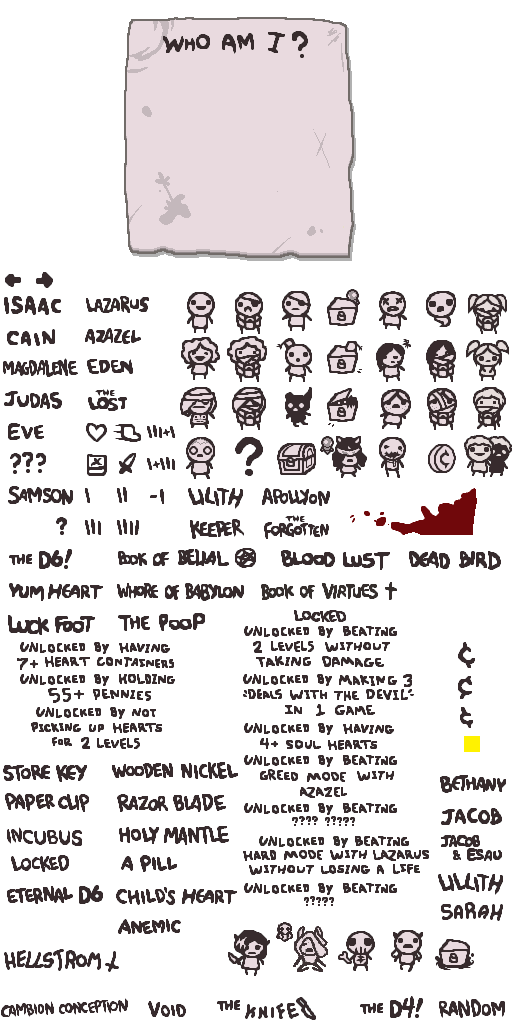 WHO AM I?
ISAAC LAZARUS
CAIN AZAZEL
MAGDALENE EDEN
JUDAS THE LOST
EVE III+I
??? I+III ?
SAMSON I II -I LILITH APOLLYON
? III IIII KEEPER THE FORGOTTEN
THE D6! BOOK OF BELIAL BLOOD LUST DEAD BIRD
YUM HEART WHORE OF BABYLON BOOK OF VIRTUES
LUCK FOOT THE POOP
UNLOCKED BY HAVING
7+ HEART CONTAINERS
UNLOCKED BY HOLDING
55+ PENNIES
UNLOCKED BY NOT
PICKING UP HEARTS
FOR 2 LEVELS
LOCKED
UNLOCKED BY BEATING
2 LEVELS WITHOUT
TAKING DAMAGE
UNLOCKED BY MAKING 3
"DEALS WITH THE DEVIL"
IN 1 GAME
UNLOCKED BY HAVING
4+ SOUL HEARTS
UNLOCKED BY BEATING
GREED MODE WITH
AZAZEL
UNLOCKED BY BEATING
???? ?????
UNLOCKED BY BEATING
HARD MODE WITH LAZARUS
WITHOUT LOSING A LIFE
UNLOCKED BY BEATING
?????
¢
¢
¢
STORE KEY WOODEN NICKEL
PAPER CLIP RAZOR BLADE
INCUBUS HOLY MANTLE
LOCKED A PILL
ETERNAL D6 CHILD'S HEART
ANEMIC
BETHANY
JACOB
JACOB
& ESAU
LILLITH
SARAH
HELLSTROM
CAMBION CONCEPTION VOID THE KNIFE THE D4! RANDOM